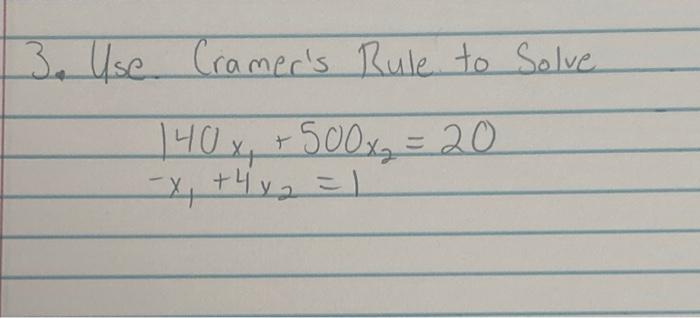 3. Use Cramer's Rule to Solve
140x₁ + 500x₂ = 20
-x₁ + 4x₂ = 1